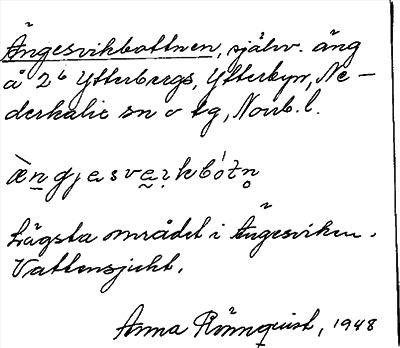 Ängesvikbottnen, självv. äng
å 2⁶ Ytterbergs, Ytterbyn, Ne-
derkalix sn o tg, Norrb. l.
Lägsta området i Ängesviken.
Vattensjukt.
Anna Rönnquist, 1948